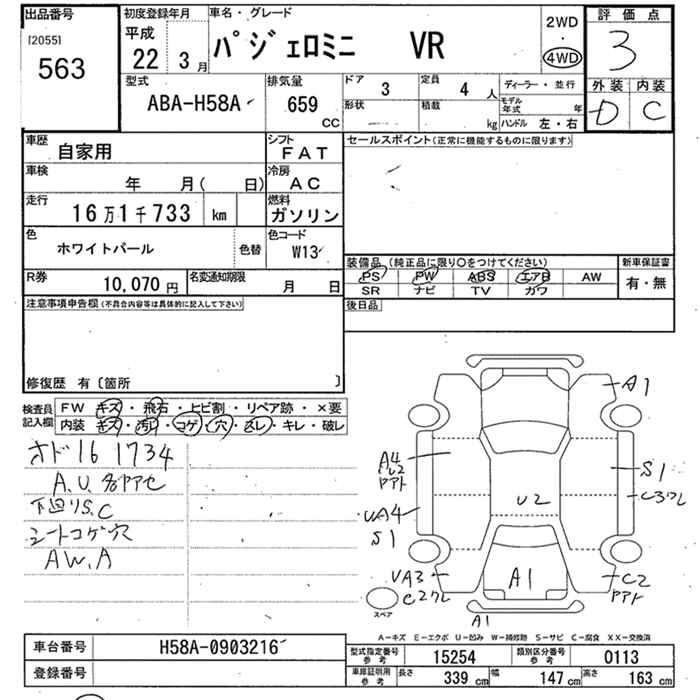 出品番号
[2055]
563
初度登録年月
平成
22 3月
車名・グレード
パジェロミニ VR
2WD
・
4WD
評価点
3
外装 内装
D C
型式
ABA-H58A
排気量
659
CC
ドア 3
定員 4 人
ディーラー・並行
形状
積載 kg
モデル年式 年
ハンドル 左・右
車歴
自家用
シフト
FAT
セールスポイント(正常に機能するものに限ります)
車検
年 月( 日)
冷房
AC
走行
16万1千733 km
燃料
ガソリン
色
ホワイトパール
色替
色コード
W13
装備品 (純正品に限り○をつけてください)
新車保証書
PS PW ABS エアB AW
SR ナビ TV カワ
有・無
R券
10,070 円
名変通知期限
月 日
後日品
注意事項申告欄(不具合内容等は具体的に記入して下さい)
修復歴 有〔箇所 〕
検査員
記入欄
FW キズ・飛石・ヒビ割・リペア跡・×要
内装 キズ・汚れ・コゲ・穴・スレ・キレ・破レ
オド161734
A.U.多
下回りS.C
シートコゲ穴
AW.A
A1
A4
U2
S1
U2
UA4
S1
UA3
A1
C2
A1
スペア
A-キズ E-エクボ U-凹み W-補修跡 S-サビ C-腐食 XX-交換済
車台番号
H58A-0903216
型式指定番号
参考
15254
類別区分番号
参考
0113
登録番号
車庫証明用
参考
長さ 339 cm
幅 147 cm
高さ 163 cm